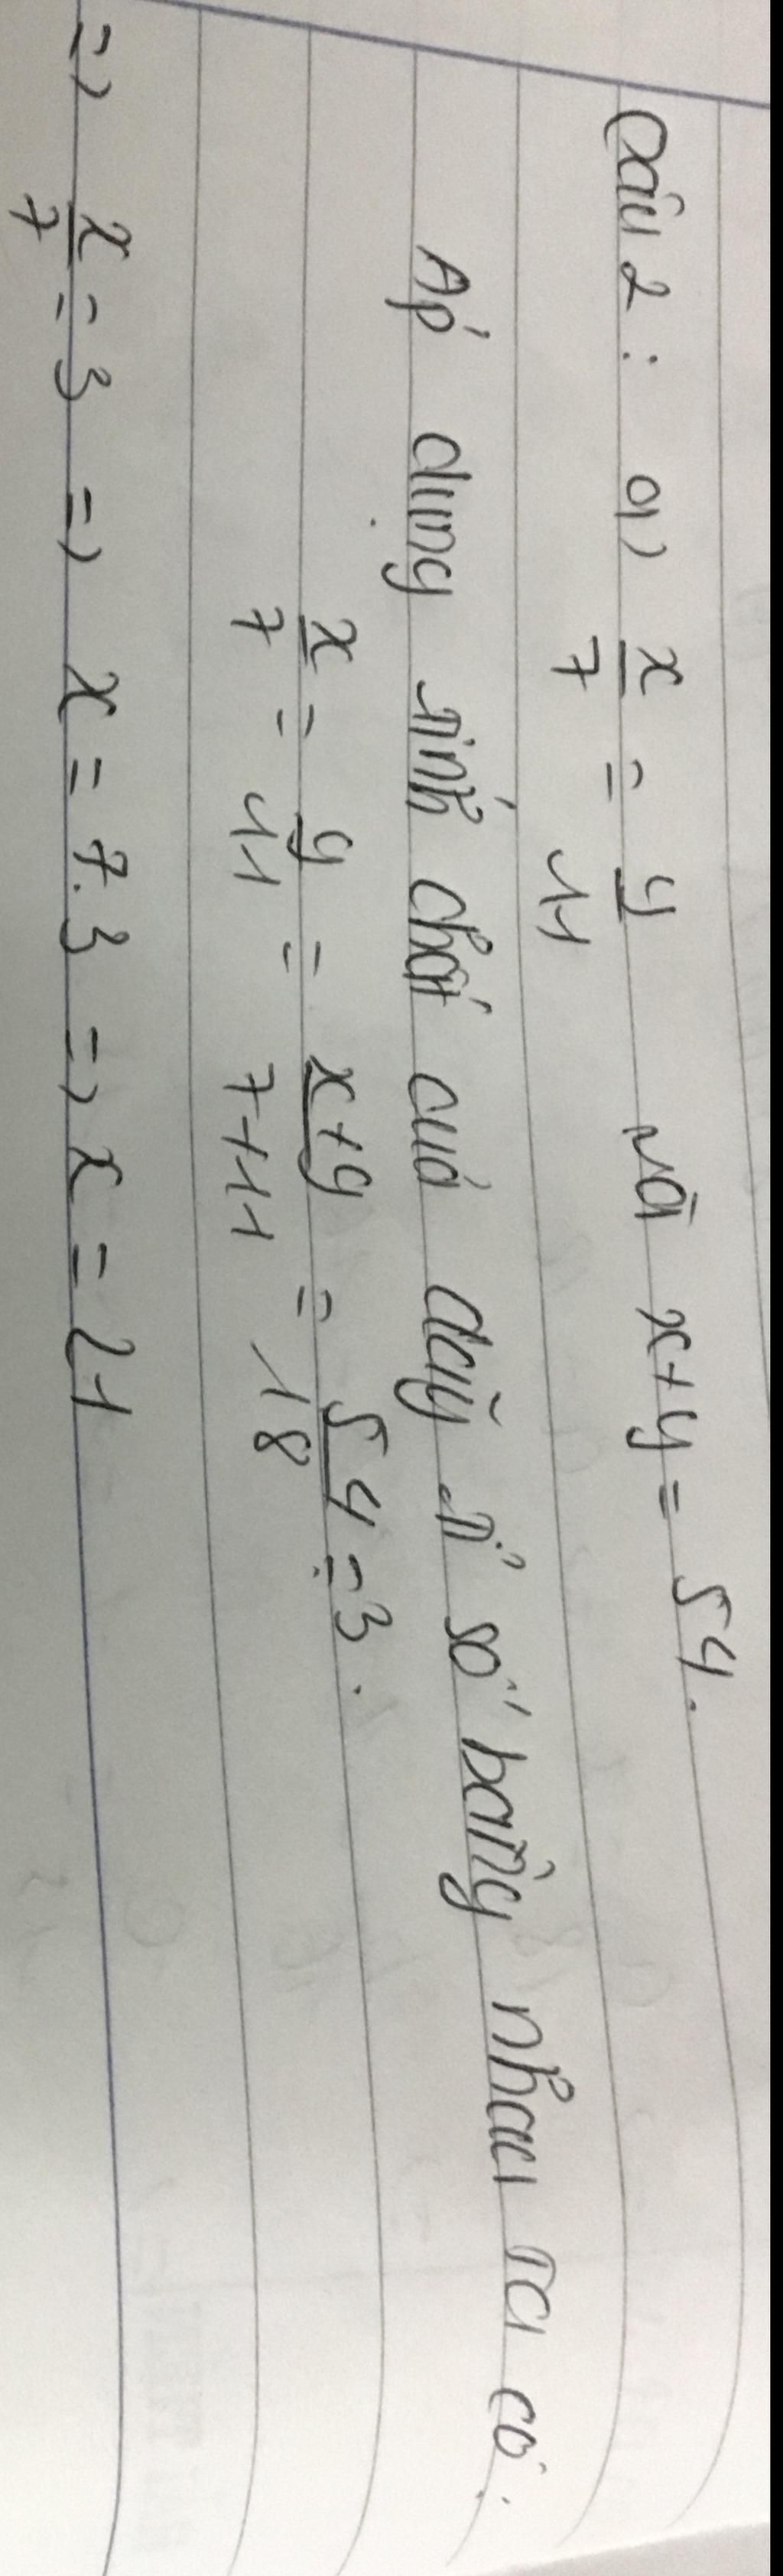 Câu 2: a) x/7 = y/11 và x+y = 54.
Áp dụng tính chất của dãy tỉ số bằng nhau ta có:
x/7 = y/11 = x+y/7+11 = 54/18 = 3.
=> x/7 = 3 => x = 7.3 => x = 21